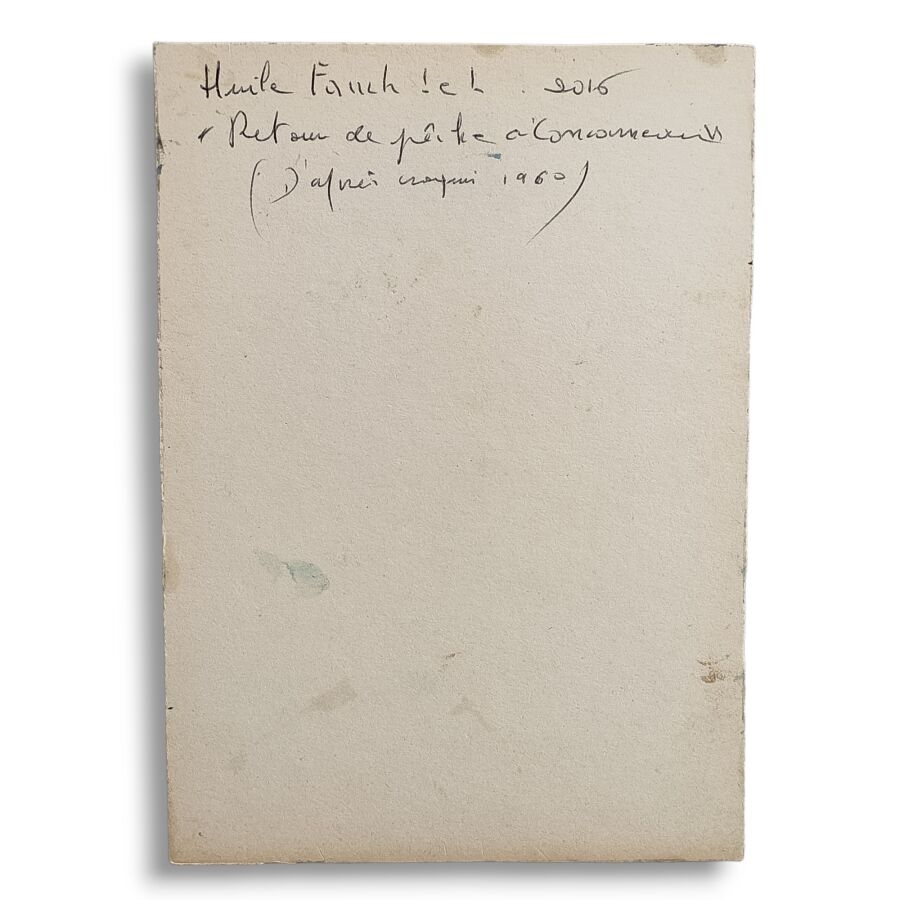 Huile Fanch Lel. 2016
"Retour de pêche à Concarneau"
(D'après croquis 1960)